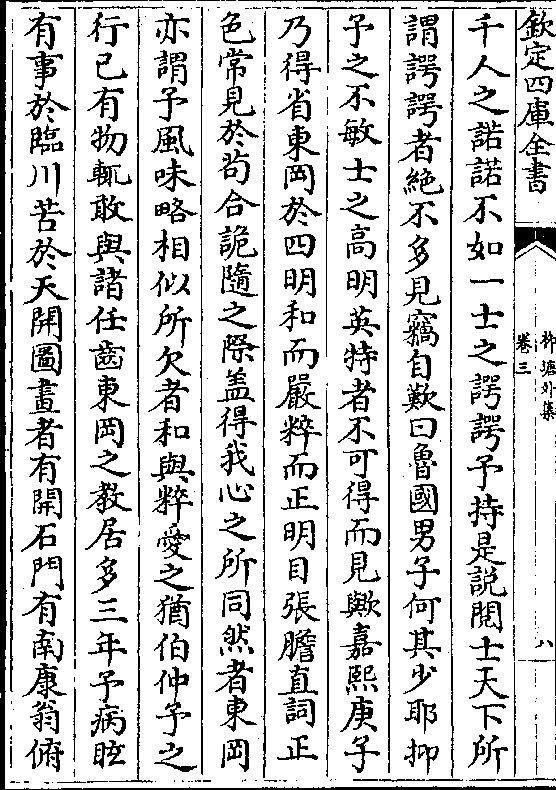 欽定四庫全書
柳塘外集
卷三
八
千人之諾諾不如一士之諤諤予持是説閲士天下所
謂諤諤者絶不多見竊自歎曰魯國男子何其少耶抑
予之不敏士之高明英特者不可得而見歟嘉熙庚子
乃得省東岡於四明和而嚴粹而正明目張膽直詞正
色常見於茍合詭隨之際葢得我心之所同然者東岡
亦謂予風味略相似所欠者和與粹愛之猶伯仲予之
行已有物輒敢與諸任齒東岡之教居多三年予病眩
有事於臨川苦於天開圖畫者有開石門有南康翁俯